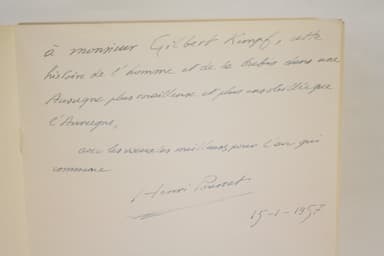 à monsieur Gilbert Kumpf, cette
histoire de l'homme et de la brebis dans une
Auvergne plus merveilleuse et plus que
l'Auvergne,
avec les vœux les meilleurs, pour l'an qui
commence
Henri Pourrat
15-1-1957